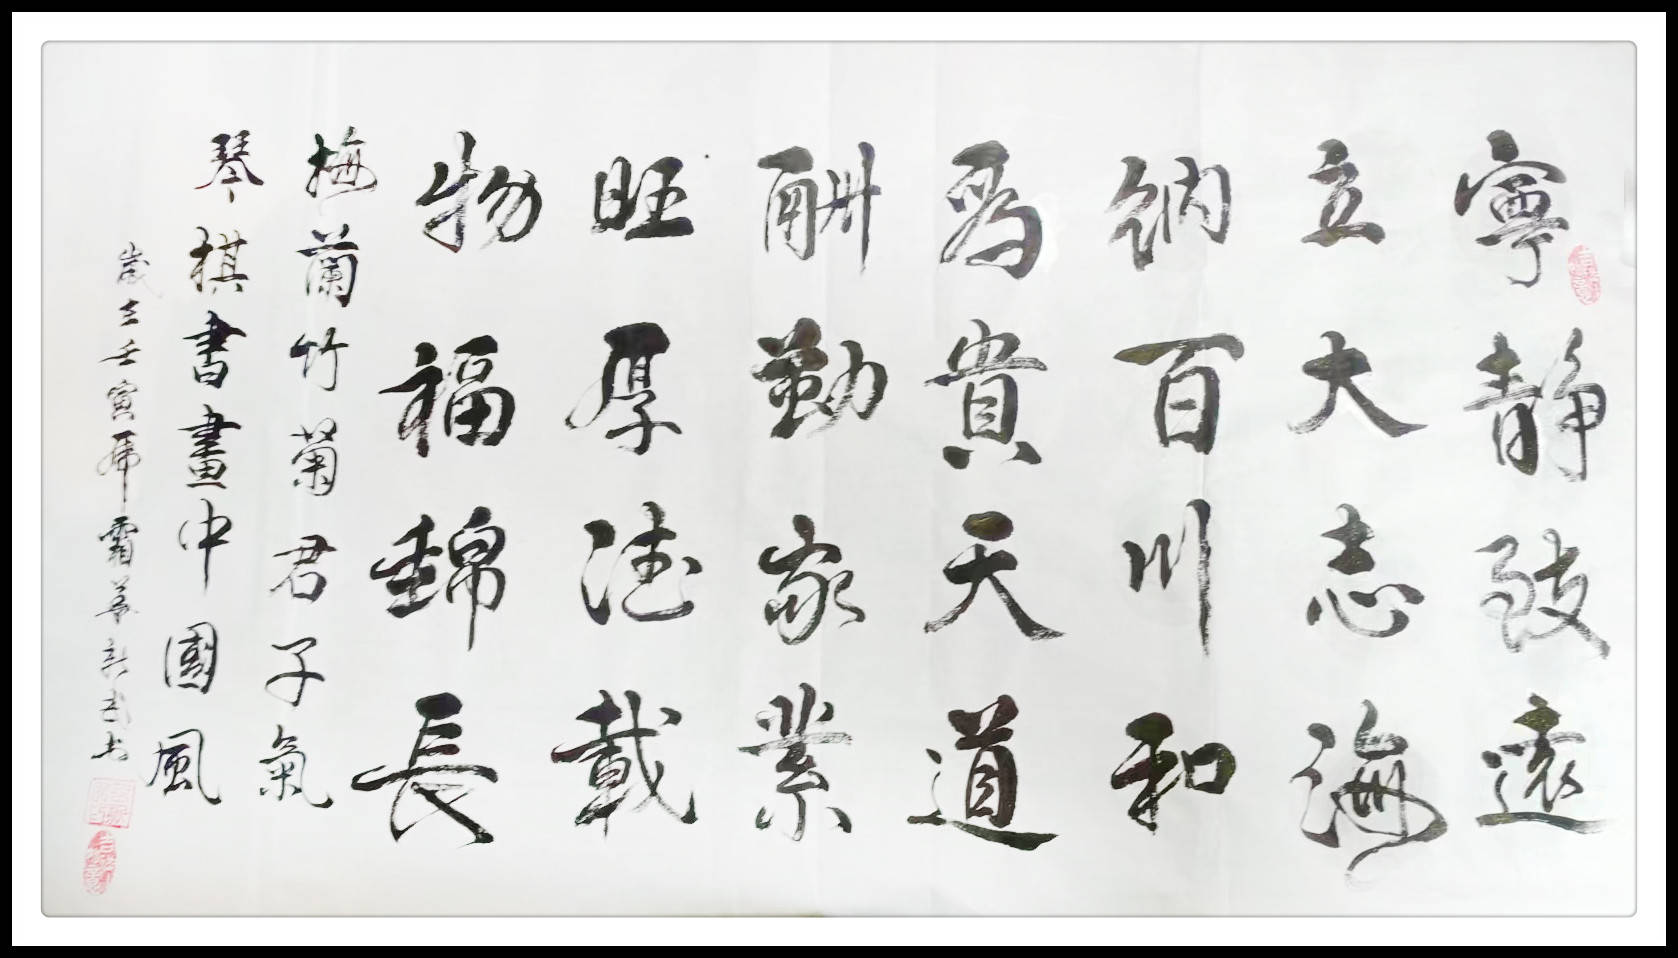 寧靜致遠
立大志海
納百川和
為貴天道
酬勤家業
旺厚德載
物福錦長
梅蘭竹菊君子氣
琴棋書畫中國風
歲在壬寅年霜華